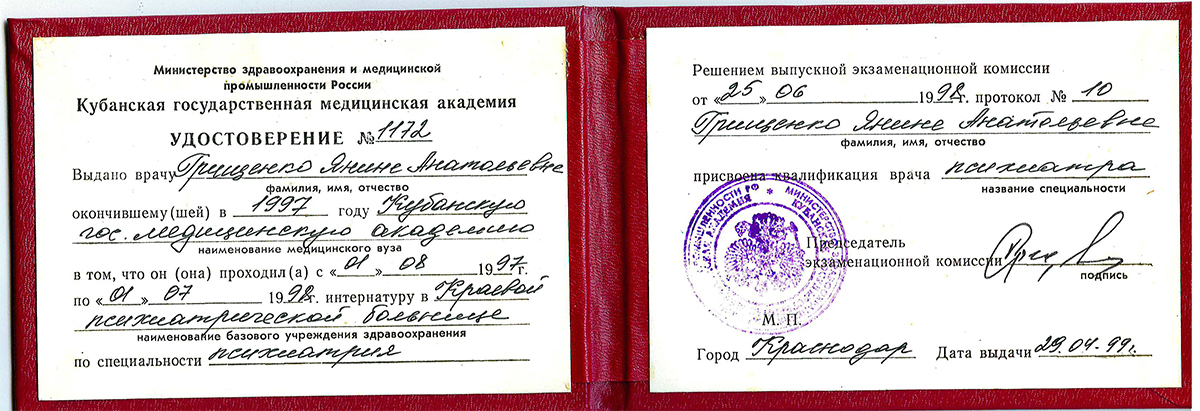 Министерство здравоохранения и медицинской
промышленности России
Кубанская государственная медицинская академия
УДОСТОВЕРЕНИЕ № 1172
Выдано врачу Грищенко Янине Анатольевне
фамилия, имя, отчество
окончившему(шей) в 1997 году Кубанскую
гос. медицинскую академию
наименование медицинского вуза
в том, что он (она) проходил(а) с «01» 08 1997г.
по «01» 07 1998г. интернатуру в Краевой
психиатрической больнице
наименование базового учреждения здравоохранения
по специальности психиатрия
Решением выпускной экзаменационной комиссии
от «25» 06 1998г. протокол № 10
Грищенко Янине Анатольевне
фамилия, имя, отчество
присвоена квалификация врача психиатра
название специальности
Председатель
экзаменационной комиссии
подпись
М. П.
Город Краснодар Дата выдачи 29.04.99г.